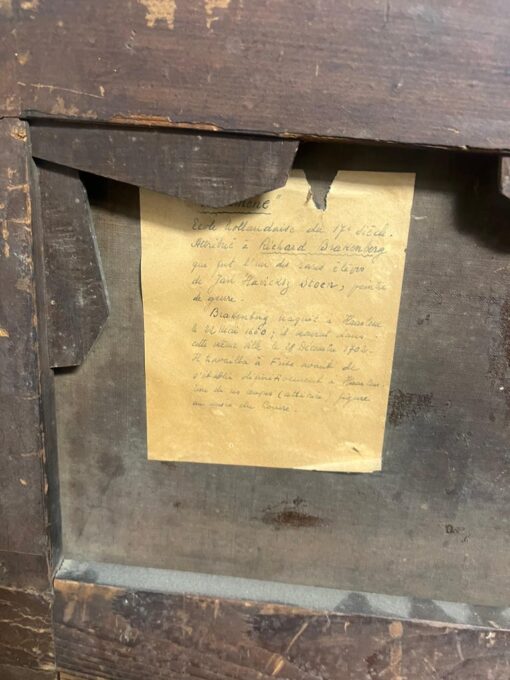 Ecole hollandaise du 17e siècle.
Attribué à Richard Brakenberg
qui fut l'un des rares élèves
de Jan Havicksz Steen, peintre
de genre.
Brakenburg naquit à Haarlem
le 22 Mai 1650; il mourut dans
cette même ville le 28 Décembre 1702.
Il travailla à Frise avant de
s'établir définitivement à Haarlem.
Une de ses œuvres (attribuée) figure
au musée du Louvre.